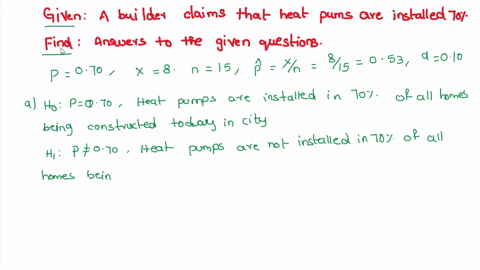 Given: A builder claims that heat pums are installed 70%
Find: Answers to the given questions.
P = 0.70, x = 8. n = 15, p̂ = x/n = 8/15 = 0.53, α = 0.10
a) H₀: P = 0.70, Heat pumps are installed in 70% of all homes
being constructed today in city
H₁: P ≠ 0.70, Heat pumps are not installed in 70% of all
homes bein